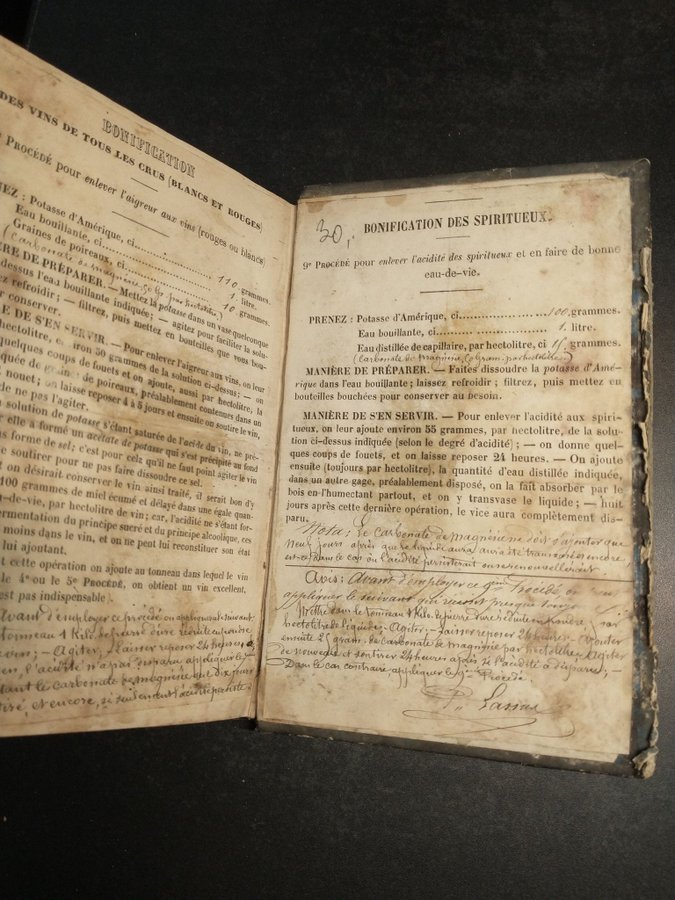 BONIFICATION
DES VINS DE TOUS LES CRUS (BLANCS ET ROUGES)
PROCÉDÉ pour enlever l'aigreur aux vins (rouges ou blancs)
NEZ : Potasse d'Amérique, ci............ 110 grammes.
Eau bouillante, ci............ 1 litre.
Graines de poireaux, ci............ 10 grammes.
(Carbonate de magnésie par hectolitre)
ÈRE DE PRÉPARER. — Mettez la potasse dans un vase quelconque
dessus l'eau bouillante indiquée ; — agitez pour faciliter la solu-
ez refroidir ; — filtrez, puis mettez en bouteilles que vous bou-
r conserver.
E DE S'EN SERVIR. — Pour enlever l'aigreur aux vins, on leur
hectolitre, iron 50 grammes de la solution ci-dessus ; — on
quelques coups de fouets et on ajoute, aussi par hectolitre, la
quée de graines de poireaux, préalablement contenues dans un
nouet ; on laisse reposer 4 à 5 jours et ensuite on soutire le vin,
de ne pas l'agiter.
solution de potasse s'étant saturée de l'acide du vin, ne pré-
elle a formé un acétate de potasse qui s'est précipité au fond
us forme de sel ; c'est pour cela qu'il ne faut point agiter le vin
e soutirer pour ne pas faire dissoudre ce sel.
on désirait conserver le vin ainsi traité, il serait bon d'y
100 grammes de miel écumé et délayé dans une égale quan-
u-de-vie, par hectolitre de vin ; car, l'acidité ne s'étant for-
ermentation du principe sucré et du principe alcoolique, ces
moins dans le vin, et on ne peut lui reconstituer son état
lui ajoutant.
t cette opération on ajoute au tonneau dans lequel le vin
le 4e ou le 5e PROCÉDÉ, on obtient un vin excellent,
est pas indispensable).
Avant d'employer ce procédé on appliquera le suivant
tonneau 1 Kilo. de
evin ; — Agiter ; — Laisser reposer 24 heures.
en, l'acidité n'a pas disparu appliquer le
tant le carbonate de magnésie que dix jours
tiré, et encore, si seulement l'acidité persiste
30.
BONIFICATION DES SPIRITUEUX.
9e PROCÉDÉ pour enlever l'acidité des spiritueux et en faire de bonne
eau-de-vie.
PRENEZ : Potasse d'Amérique, ci............ 100 grammes.
Eau bouillante, ci............ 1. litre.
Eau distillée de capillaire, par hectolitre, ci
(carbonate de magnésie, gram. par hectolitre)
MANIÈRE DE PRÉPARER. — Faites dissoudre la potasse d'Amé-
rique dans l'eau bouillante ; laissez refroidir ; filtrez, puis mettez en
bouteilles bouchées pour conserver au besoin.
MANIÈRE DE S'EN SERVIR. — Pour enlever l'acidité aux spiri-
tueux, on leur ajoute environ 55 grammes, par hectolitre, de la solu-
tion ci-dessus indiquée (selon le degré d'acidité) ; — on donne quel-
ques coups de fouets, et on laisse reposer 24 heures. — On ajoute
ensuite (toujours par hectolitre), la quantité d'eau distillée indiquée,
dans un autre gage, préalablement disposé, on la fait absorber par le
bois en l'humectant partout, et on y transvase le liquide ; — huit
jours après cette dernière opération, le vice aura complètement dis-
paru.
Nota : Le carbonate de magnésie ne doit s'ajouter que
neuf jours après que le liquide aura été transvasé et encore,
est-ce dans le cas où l'acidité persisterait ou se renouvellerait
Avis : Avant d'employer ce 9me Procédé, on
appliquer le suivant qui réussit presque toujours
Mettre dans le tonneau 1 Kilo. de réduite en poudre, par
hectolitre de liquide ; — Agiter ; — Laisser reposer 24 heures — Ajouter
ensuite 25 gram. de carbonate de magnésie par hectolitre, Agiter
de nouveau et soutirer 24 heures après si l'acidité a disparu ; —
Dans le cas contraire, appliquer le 9me Procédé.